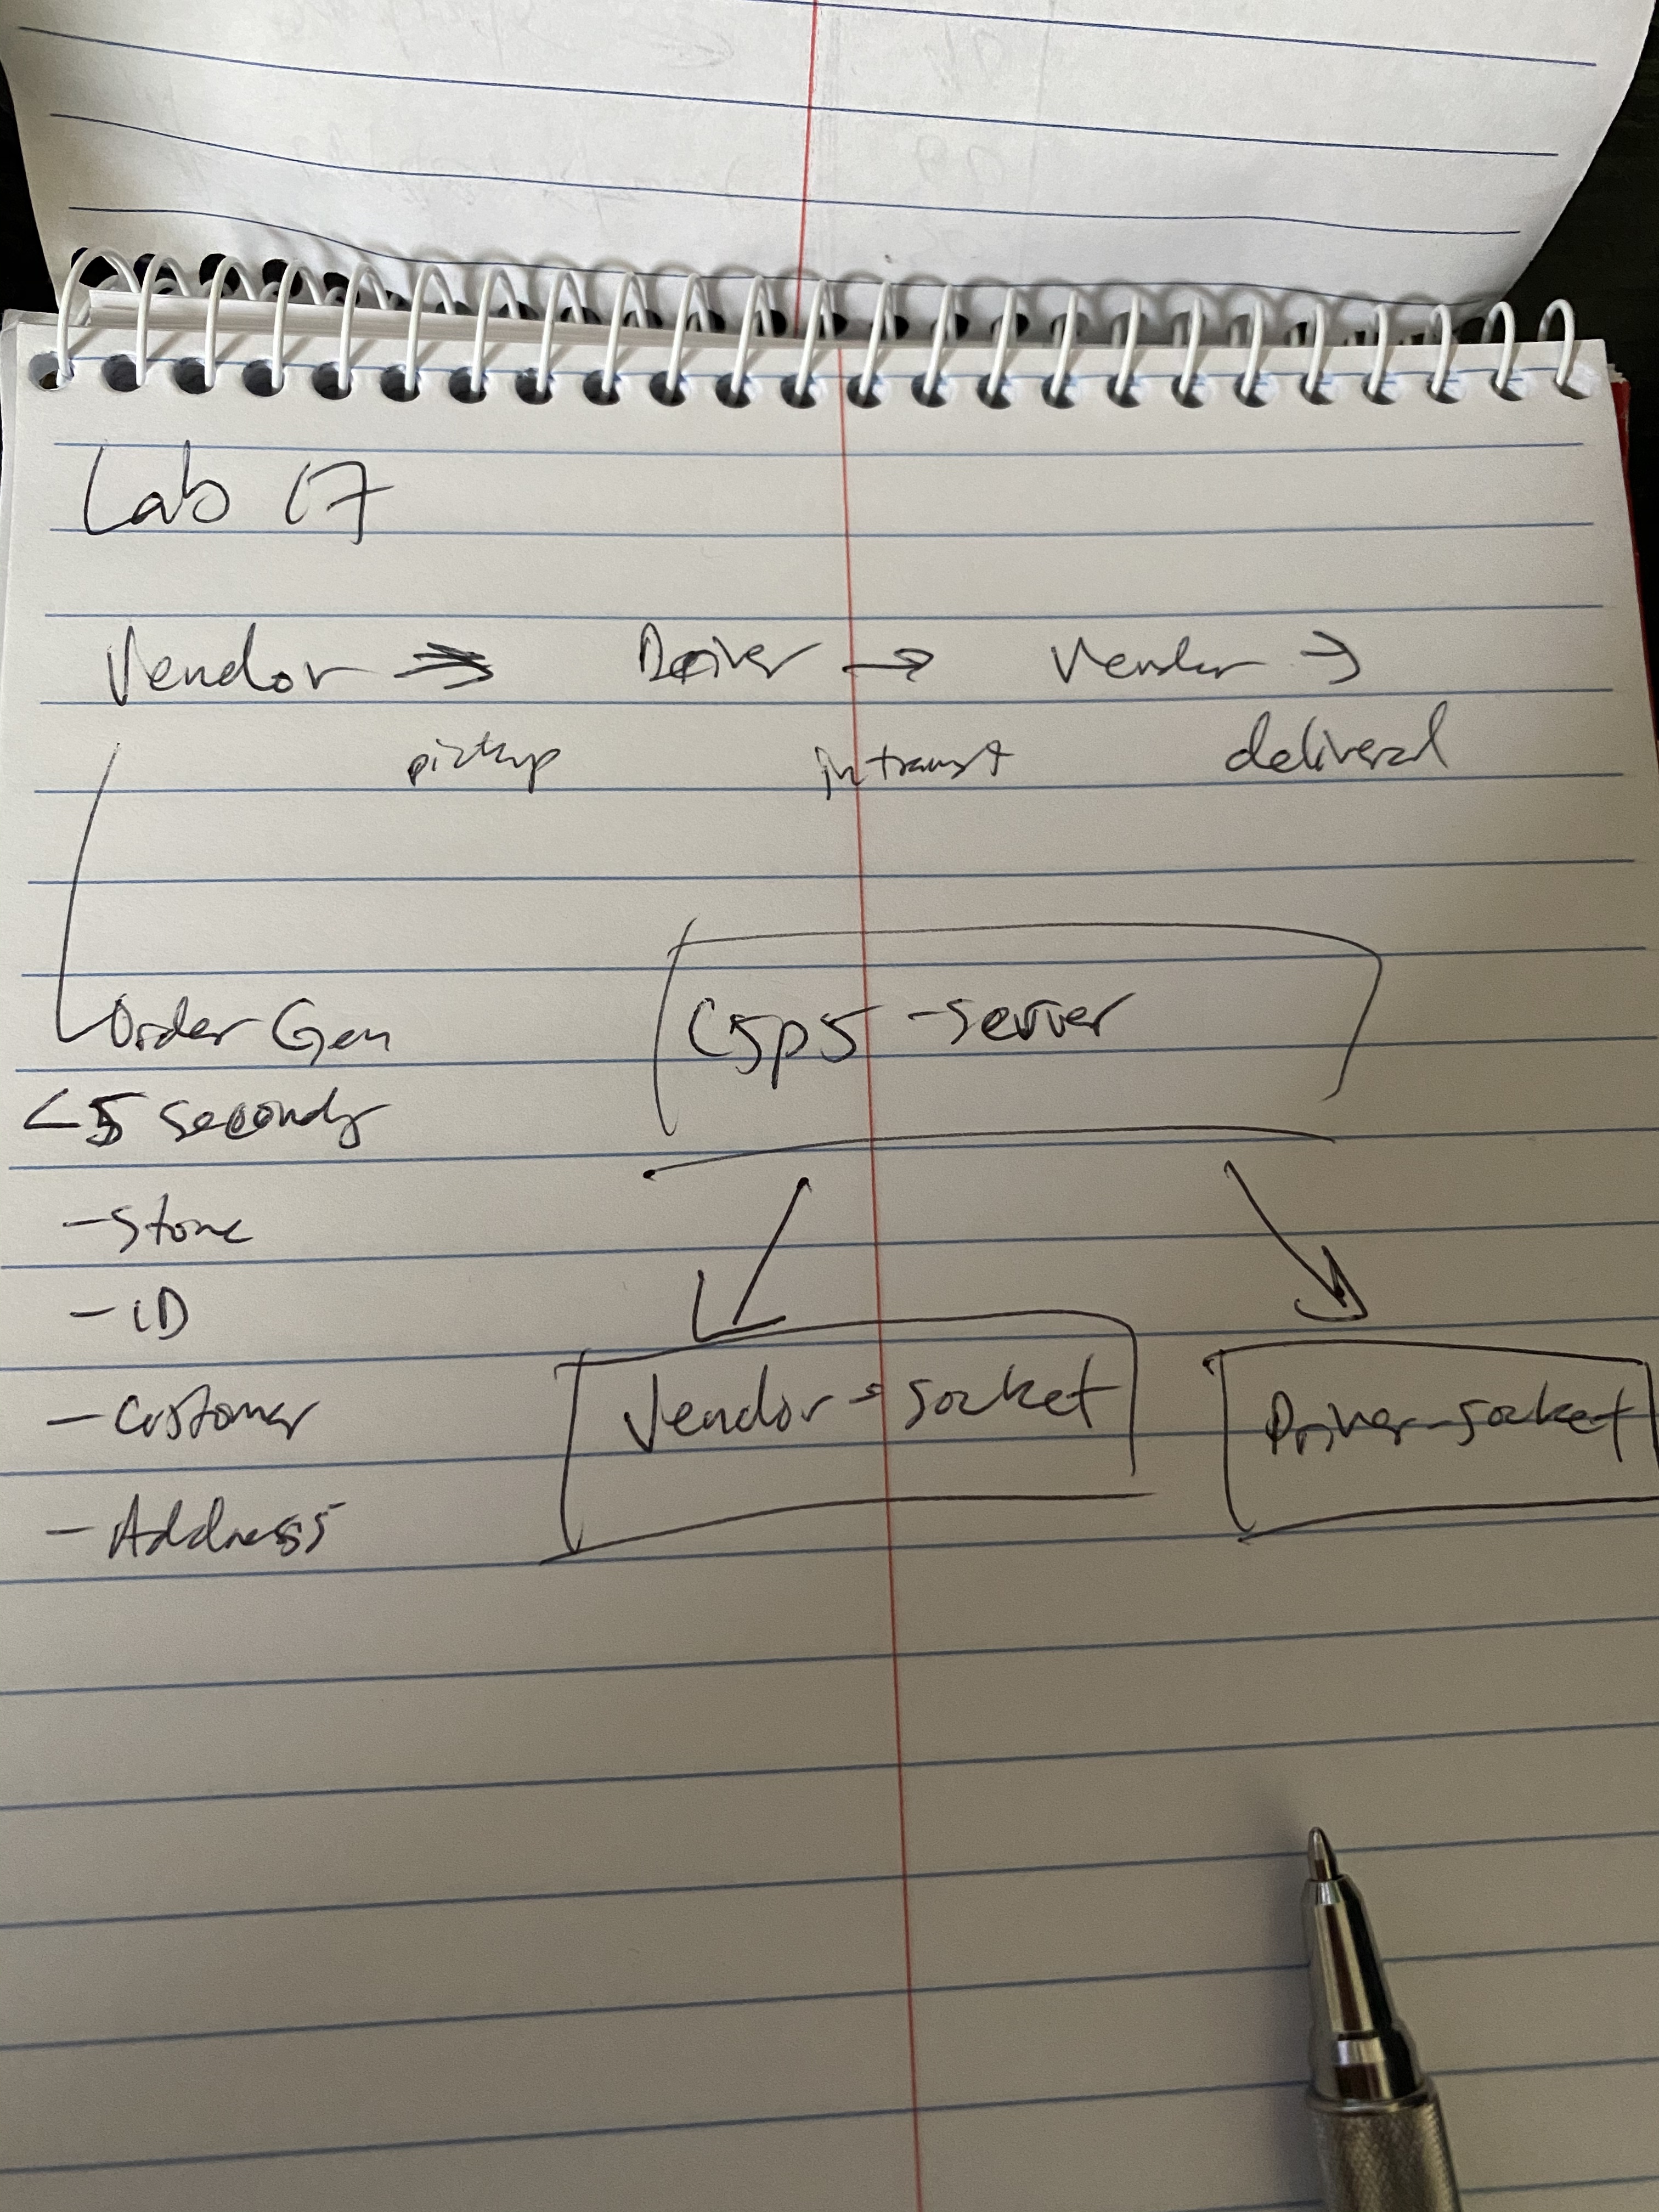 Lab 17
Vendor → Driver → Vendor →
pickup in transit delivered
Order Gen
<5 seconds
- Store
- iD
- Customer
- Address
C5p5 - server
Vendor - socket
Driver - socket